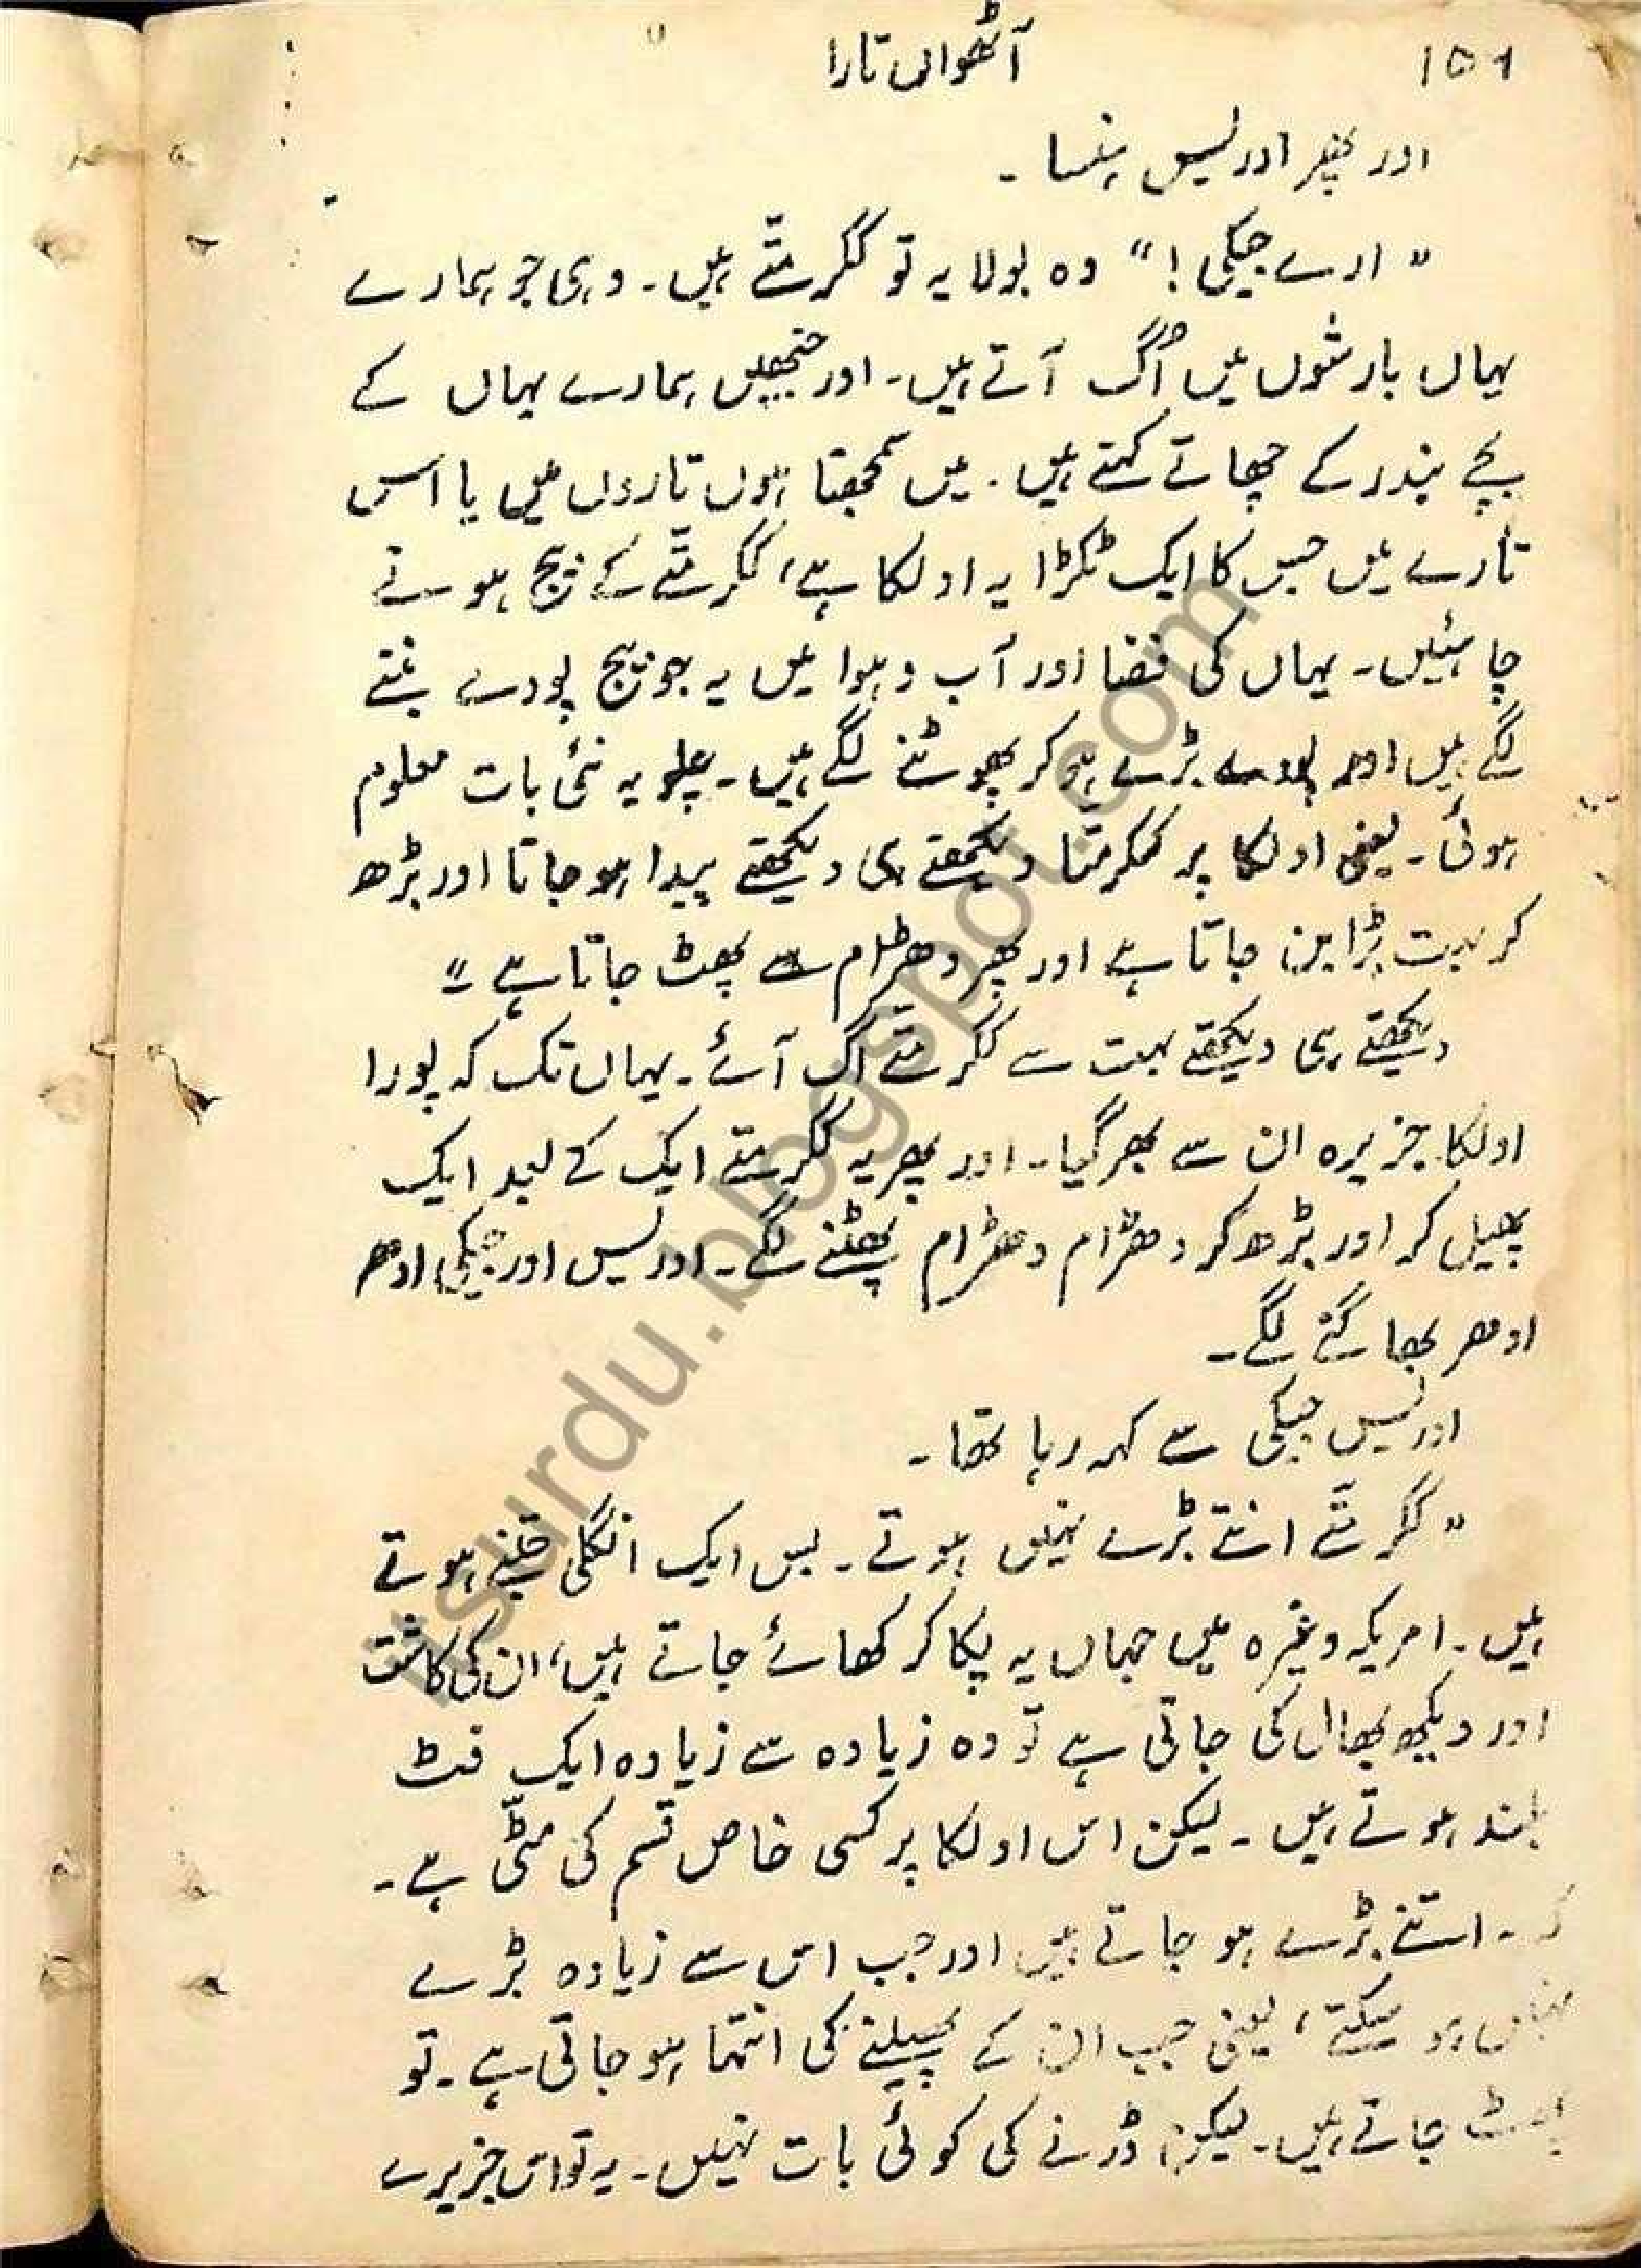 ۱۵۶ آٹھواں تارا
اور پھر ادریس ہنسا ۔
" ارے جیکی ! " وہ بولا یہ تو ککرمتّے ہیں ۔ وہی جو ہمارے
یہاں بارشوں میں اُگ آتے ہیں ۔ اور جنھیں ہمارے یہاں کے
بچے بندر کے چھاتے کہتے ہیں ۔ میں سمجھتا ہوں تاروں میں یا اس
تارے میں جس کا ایک ٹکڑا یہ اولکا ہے، ککرمتّے کے بیج ہونے
چاہئیں ۔ یہاں کی فضا اور آب و ہوا میں یہ جو بیج پودے بننے
لگے ہیں اور پودے بڑے ہو کر پھوٹنے لگے ہیں ۔ چلو یہ نئی بات معلوم
ہوئی ۔ یعنی اولکا پر ککرمتا دیکھتے ہی دیکھتے پیدا ہو جاتا اور بڑھ
کر بہت بڑا بن جاتا ہے اور پھر دھڑام سے پھٹ جاتا ہے "
دیکھتے ہی دیکھتے بہت سے ککرمتے اگ آئے ۔ یہاں تک کہ پورا
اولکا جزیرہ ان سے بھر گیا ۔ اور پھر یہ ککرمتے ایک کے بعد ایک
پھیل کر اور بڑھ کر دھڑام دھڑام پھٹنے لگے ۔ ادریس اور جیکی ادھر
ادھر بھاگنے لگے ۔
ادریس جیکی سے کہہ رہا تھا ۔
" ککرمتّے اتنے بڑے نہیں ہوتے ۔ بس ایک انگلی جتنے ہوتے
ہیں ۔ امریکہ وغیرہ میں جہاں یہ پکا کر کھائے جاتے ہیں، ان کی کاشت
اور دیکھ بھال کی جاتی ہے تو وہ زیادہ سے زیادہ ایک فٹ
بلند ہوتے ہیں ۔ لیکن اس اولکا پر کسی خاص قسم کی مٹّی ہے ۔
اتنے بڑے ہو جاتے ہیں اور جب اس سے زیادہ بڑے
نہیں ہو سکتے، یعنی جب ان کے پھیلنے کی انتہا ہو جاتی ہے ۔ تو
پھٹ جاتے ہیں ۔ لیکن ڈرنے کی کوئی بات نہیں ۔ یہ تو اس جزیرے
itsurdu.blogspot.com